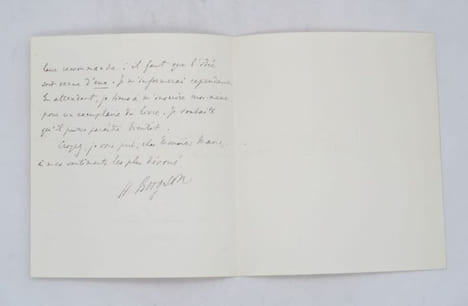 leur recommande : il faut que l'idée
soit venue d'eux. Je m'informerai cependant.
En attendant, je tiens à m'inscrire moi-même
pour un exemplaire du livre. Je souhaite
qu'il puisse paraître bientôt.
Croyez, je vous prie, cher Monsieur
à mes sentiments les plus dévoués
H. Bergson